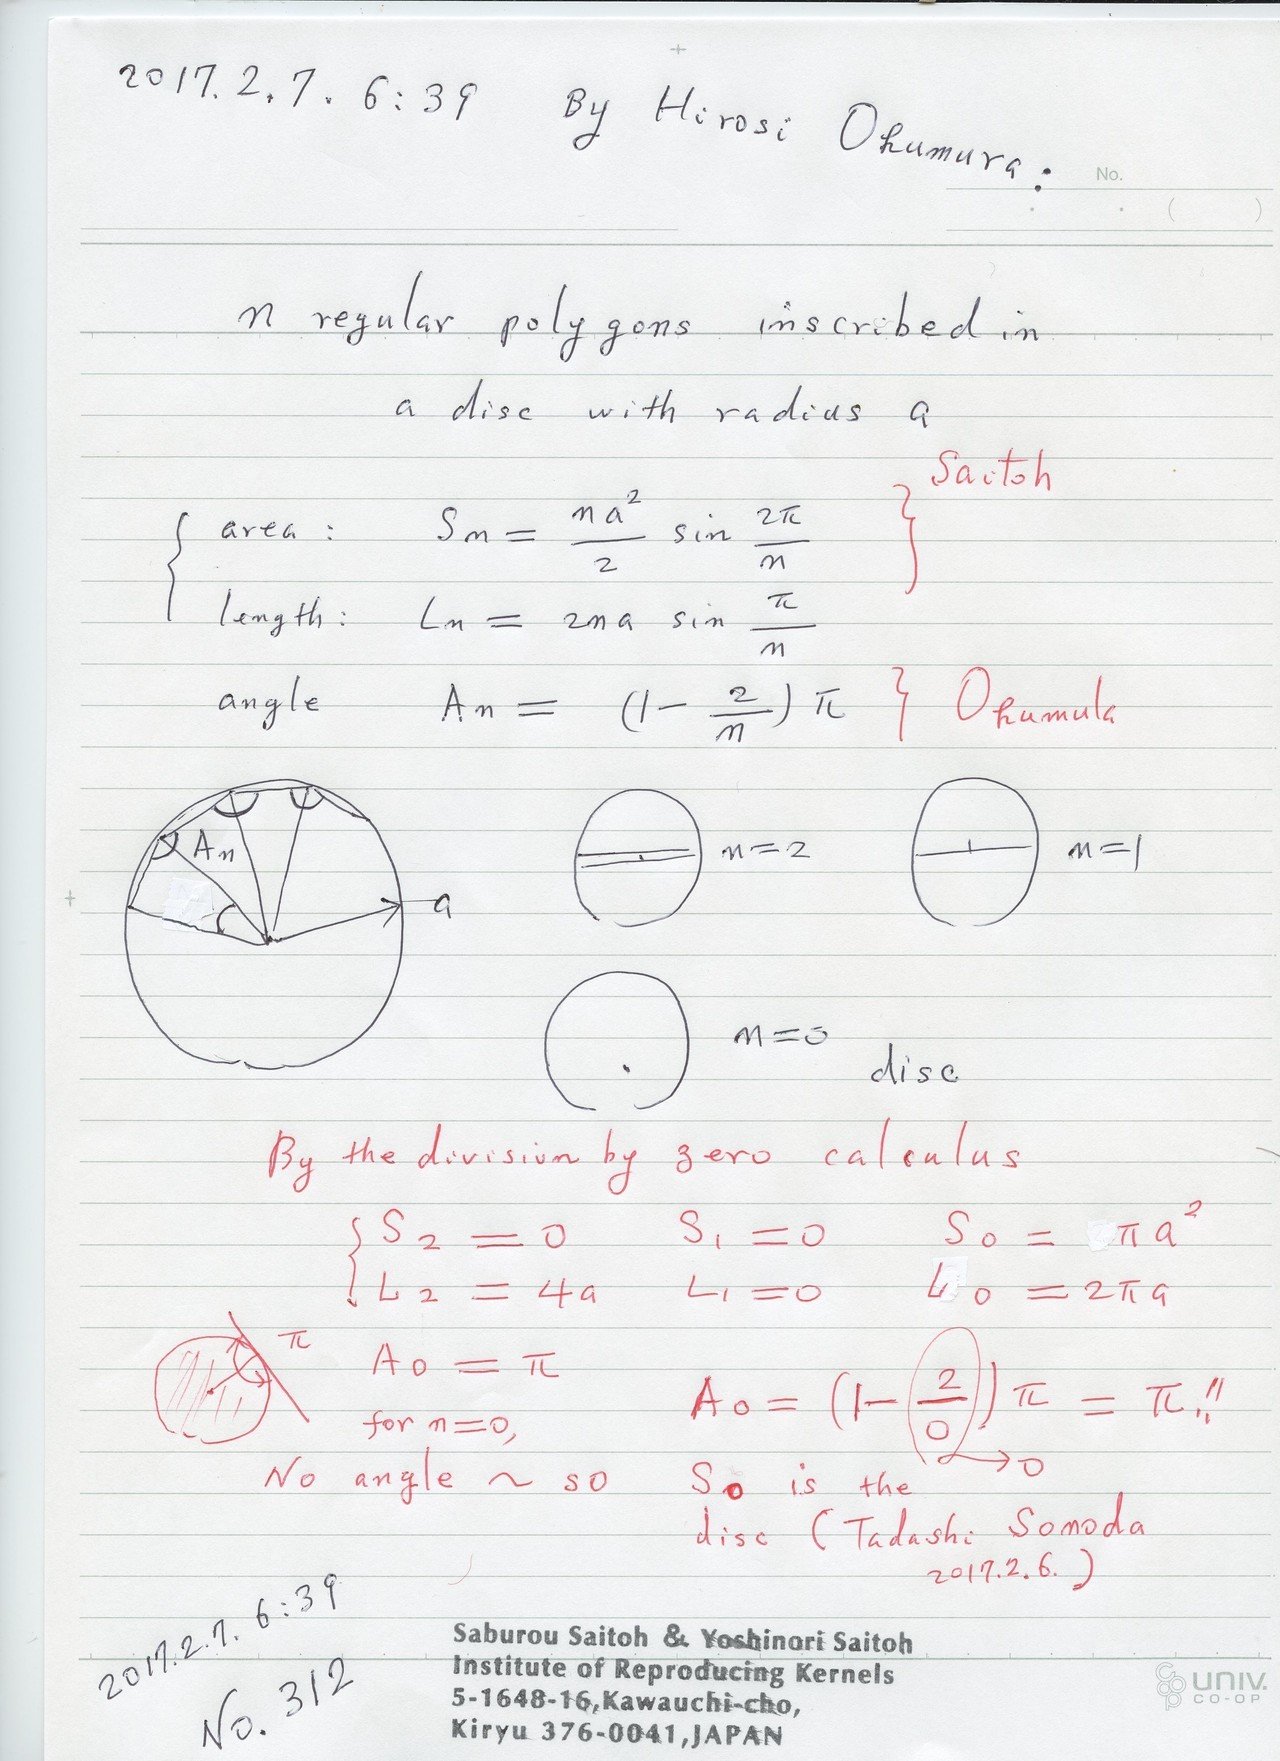 2017.2.7. 6:39 By Hirosi Okumura:
No.
( )
n regular polygons inscribed in
a disc with radius a
Saitoh
area: Sn = na²/2 sin 2π/n
length: Ln = 2na sin π/n
angle An = (1 - 2/n) π } Okumula
An
a
n=2
n=1
n=0
disc
By the division by zero calculus
S2 = 0 S1 = 0 S0 = πa²
L2 = 4a L1 = 0 L0 = 2πa
π
A0 = π
A0 = (1 - 2/0) π = π!!
for n=0,
→ 0
No angle ~ so S0 is the
disc (Tadashi Sonoda
2017.2.6.)
2017.2.7. 6:39
No. 312
Saburou Saitoh & Yoshinori Saitoh
Institute of Reproducing Kernels
5-1648-16,Kawauchi-cho,
Kiryu 376-0041,JAPAN
UNIV.
CO-OP